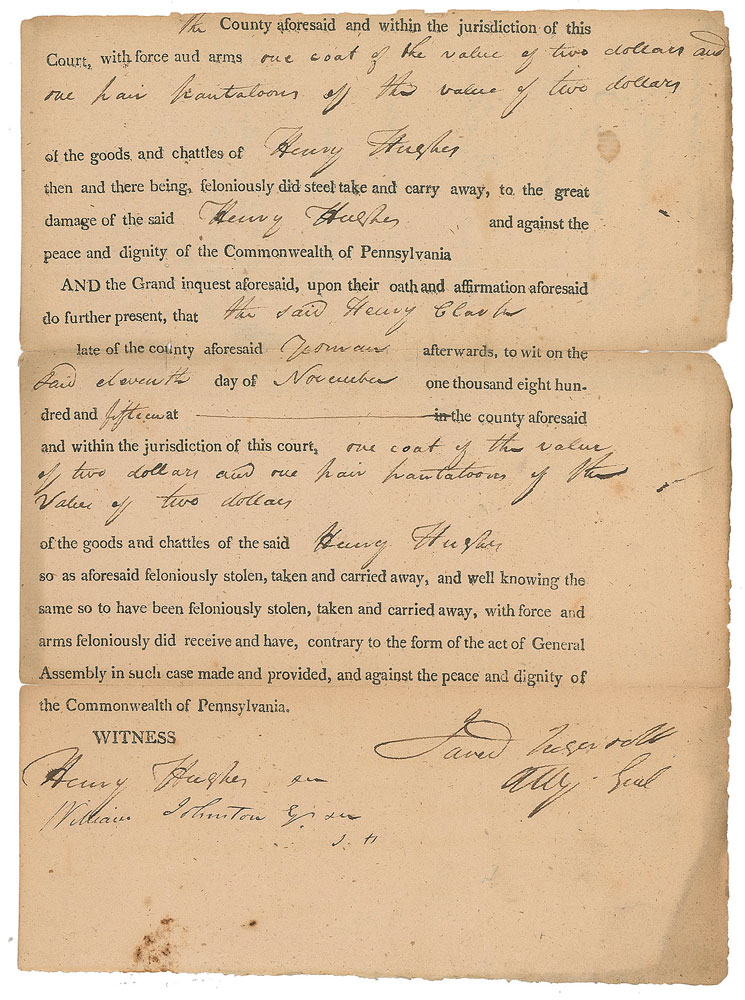 the County aforesaid and within the jurisdiction of this
Court, with force aud arms one coat of the value of two dollars and
one pair pantaloons of the value of two dollars
of the goods and chattles of Henry Hughes
then and there being, feloniously did steel take and carry away, to the great
damage of the said Henry Hughes and against the
peace and dignity of the Commonwealth of Pennsylvania
AND the Grand inquest aforesaid, upon their oath and affirmation aforesaid
do further present, that the said Henry Clark
late of the county aforesaid Yeoman afterwards, to wit on the
said eleventh day of November one thousand eight hun-
dred and fifteen at in the county aforesaid
and within the jurisdiction of this court, one coat of the value
of two dollars and one pair pantaloons of the
value of two dollars
of the goods and chattles of the said Henry Hughes
so as aforesaid feloniously stolen, taken and carried away, and well knowing the
same so to have been feloniously stolen, taken and carried away, with force and
arms feloniously did receive and have, contrary to the form of the act of General
Assembly in such case made and provided, and against the peace and dignity of
the Commonwealth of Pennsylvania.
WITNESS
Jared Ingersoll
Atty. Genl
Henry Hughes
William Johnston